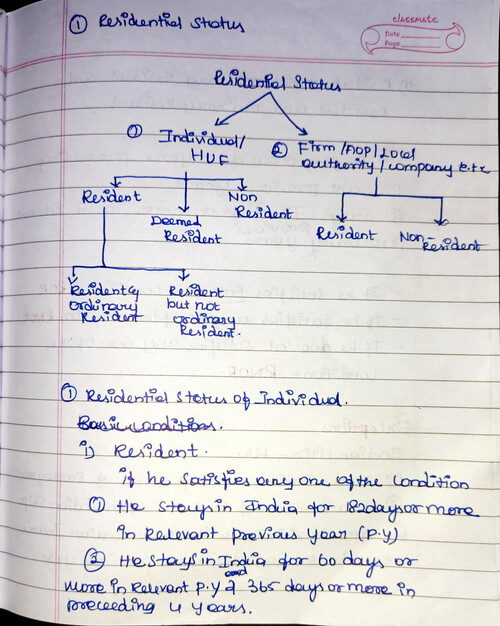 ① Residential Status
classmate
Date
Page
Residential Status
① Individual/
HUF
② Firm/AOP/Local
authority/company etc
Resident
Deemed
Resident
Non
Resident
Resident
Non-
Resident
Resident
ordinary
Resident
Resident
but not
ordinary
Resident.
① Residential Status of Individual.
Basic conditions.
i) Resident.
if he satisfies any one of the condition
① He stays in India for 182 days or more
in Relevant previous year (P.Y)
② He stays in India for 60 days or
and
more in Relevant P.Y & 365 days or more in
preceeding 4 years.